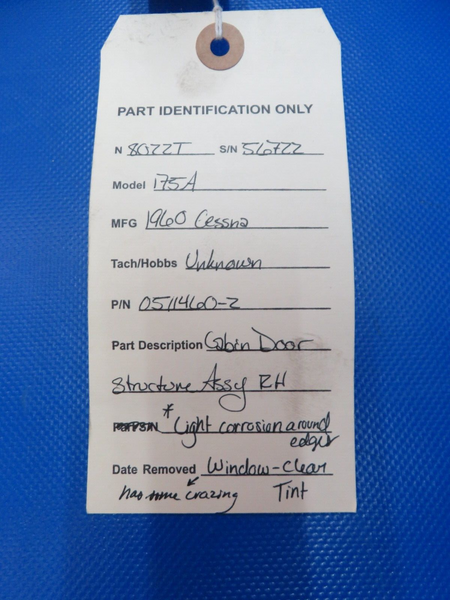 PART IDENTIFICATION ONLY
N 8022T S/N 56722
Model 175A
MFG 1960 Cessna
Tach/Hobbs Unknown
P/N 0511460-2
Part Description Cabin Door
Structure Assy RH
* Light corrosion around
edges
Date Removed Window-Clear
has some crazing Tint